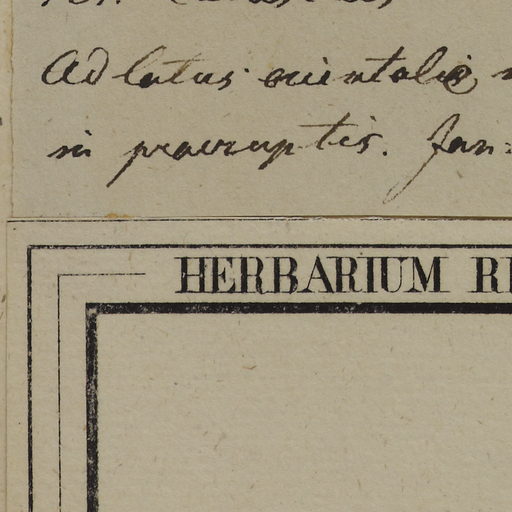 Ad latus orientalis
in praeruptis. Jan:
HERBARIUM R